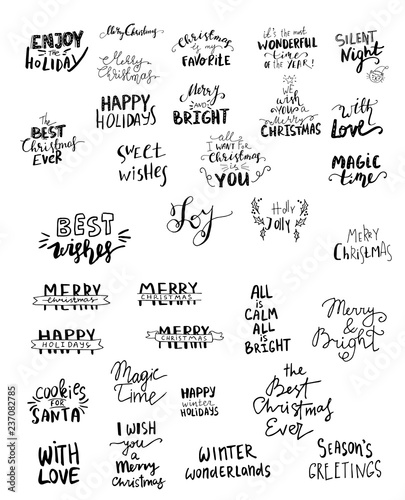 ENJOY
the
HOLIDAY
Merry Christmas
Merry
Christmas
Christmas
is my
FAVORITE
it's the most
WONDERFUL
time
OF THE YEAR!
SILENT
Night
The
BEST
Christmas
EVER
HAPPY
HOLIDAYS
Merry
AND
BRIGHT
WE
WISH
YOU A
Merry
CHRISTMAS
With
Love
SWEET
WISHES
all
I WANT FOR
Christmas
is
YOU
MAGIC
time
BEST
wishes
Joy
Holly
Jolly
MERRY
CHRISTMAS
MERRY
Christmas
MERRY
CHRISTMAS
HAPPY
HOLIDAYS
MERRY
CHRISTMAS
ALL
is
CALM
ALL
is
BRIGHT
Merry
&
Bright
COOKIES
FOR
SANTA
Magic
Time
HAPPY
winter
HOLIDAYS
the
Best
Christmas
Ever
WITH
LOVE
I WISH
you
a
Merry
Christmas
WINTER
wonderlands
SEASON'S
GREETINGS
Adobe Stock | #237082785